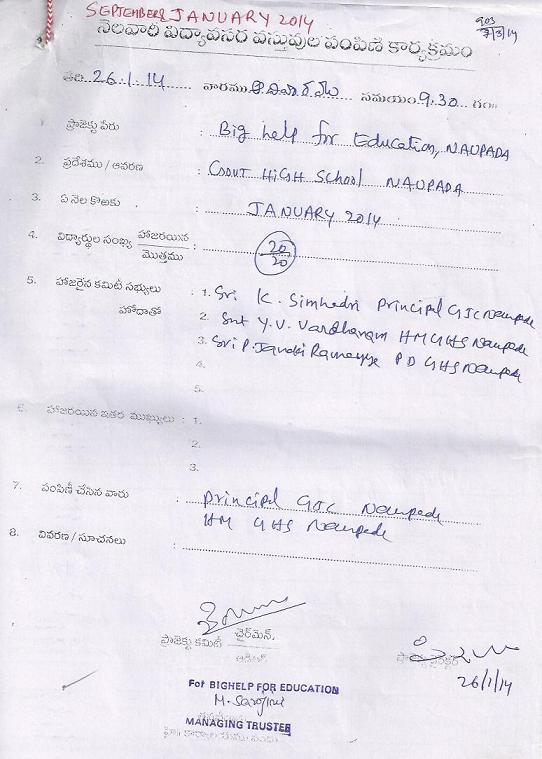 SEPTEMBER & JANUARY 2014
903
7/3/14
నెలవారీ విద్యావసర వస్తువుల పంపిణీ కార్యక్రమం
తేది. 26.1.14 వారము ఆదివారము సమయం 9.30 గం
1. ప్రాజెక్టు పేరు : Big help for Education, NAUPADA
2. ప్రదేశము / ఆవరణ : Govt HIGH School NAUPADA
3. ఏ నెల కొఱకు : JANUARY 2014
4. విద్యార్థుల సంఖ్య హాజరయిన / మొత్తము : 20/20
5. హాజరైన కమిటీ సభ్యులు హోదాతో : 1. Sri K. Simhadri Principal GJC Naupada
2. Smt Y.V. Vardhanam HM GHS Naupada
3. Sri P. Janaki Ramayya PD GHS Naupada
4.
5.
6. హాజరయిన ఇతర ముఖ్యులు : 1.
2.
3.
7. పంపిణీ చేసిన వారు : Principal GJC Naupada
HM GHS Naupada
8. వివరణ / సూచనలు :
ప్రాజెక్టు కమిటీ ఛైర్మెన్.
26/1/14
For BIGHELP FOR EDUCATION
M. Sarojini
MANAGING TRUSTEE